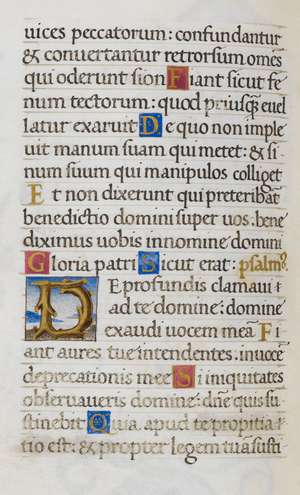 uices peccatorum: confundantur
& conuertantur retrorsum om̄es
qui oderunt sion Fiant sicut fe
num tectorum: quod priusq̄ euel
latur exaruit De quo non imple
uit manum suam qui metet: & si
num suum qui manipulos colliget
Et non dixerunt qui preteribāt
benedictio domini super uos: bene
diximus uobis in nomine domini
Gloria patri Sicut erat: psalmꝰ.
DE profundis clamaui
ad te domine: domine
exaudi uocem meā Fi
ant aures tue intendentes. in uocē
deprecationis mee Si iniquitates
obseruaueris domine: dn̄e quis su
stinebit Quia apud te propitia
tio est: & propter legem tuā susti